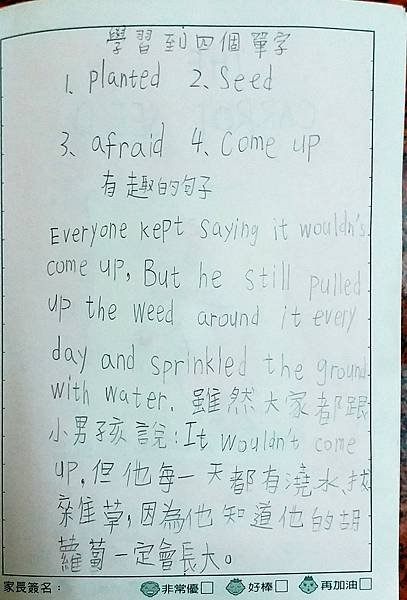 學習到四個單字
1. planted 2. Seed
3、afraid 4、Come up
有趣的句子
Everyone kept saying it wouldn's
come up, But he still pulled
up the weed around it every
day and sprinkled the ground
with water. 雖然大家都跟
小男孩說:It wouldn't come
up,但他每一天都有澆水、拔
雜草,因為他知道他的胡
蘿蔔一定會長大。
家長簽名: 非常優□ 好棒□ 再加油□